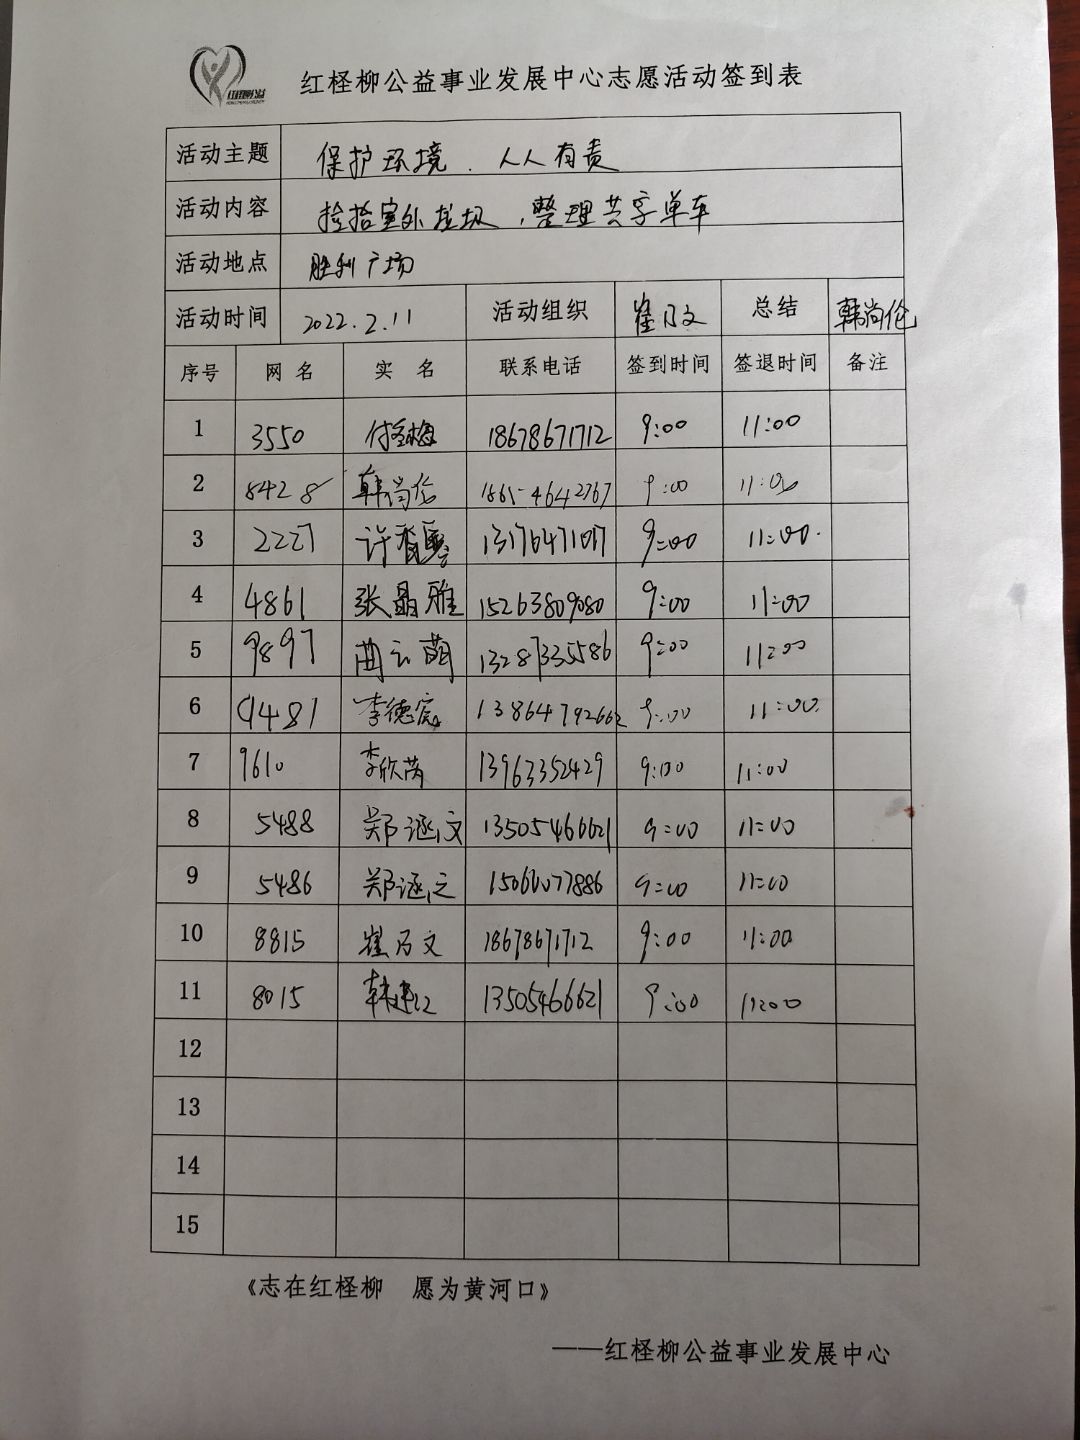 红柽柳公益事业发展中心志愿活动签到表
活动主题 保护环境、人人有责
活动内容 捡拾室外垃圾,整理共享单车
活动地点 胜利广场
活动时间 2022.2.11 活动组织 崔乃文 总结 韩尚伦
序号 网名 实名 联系电话 签到时间 签退时间 备注
1 3550 18678671712 9:00 11:00
2 8428 韩尚伦 9:00 11:00
3 2227 许 9:00 11:00
4 4861 张晶雅 15263809080 9:00 11:00
5 9897 曲云萌 13287335586 9:00 11:00
6 9481 李德宸 13864792662 9:00 11:00
7 9610 李欣芮 13963352429 9:00 11:00
8 5488 郑涵文 13505466621 9:00 11:00
9 5486 郑涵元 15066077886 9:00 11:00
10 8815 崔乃文 18678671712 9:00 11:00
11 8015 13505466621 9:00 11:00
12
13
14
15
《志在红柽柳 愿为黄河口》
——红柽柳公益事业发展中心